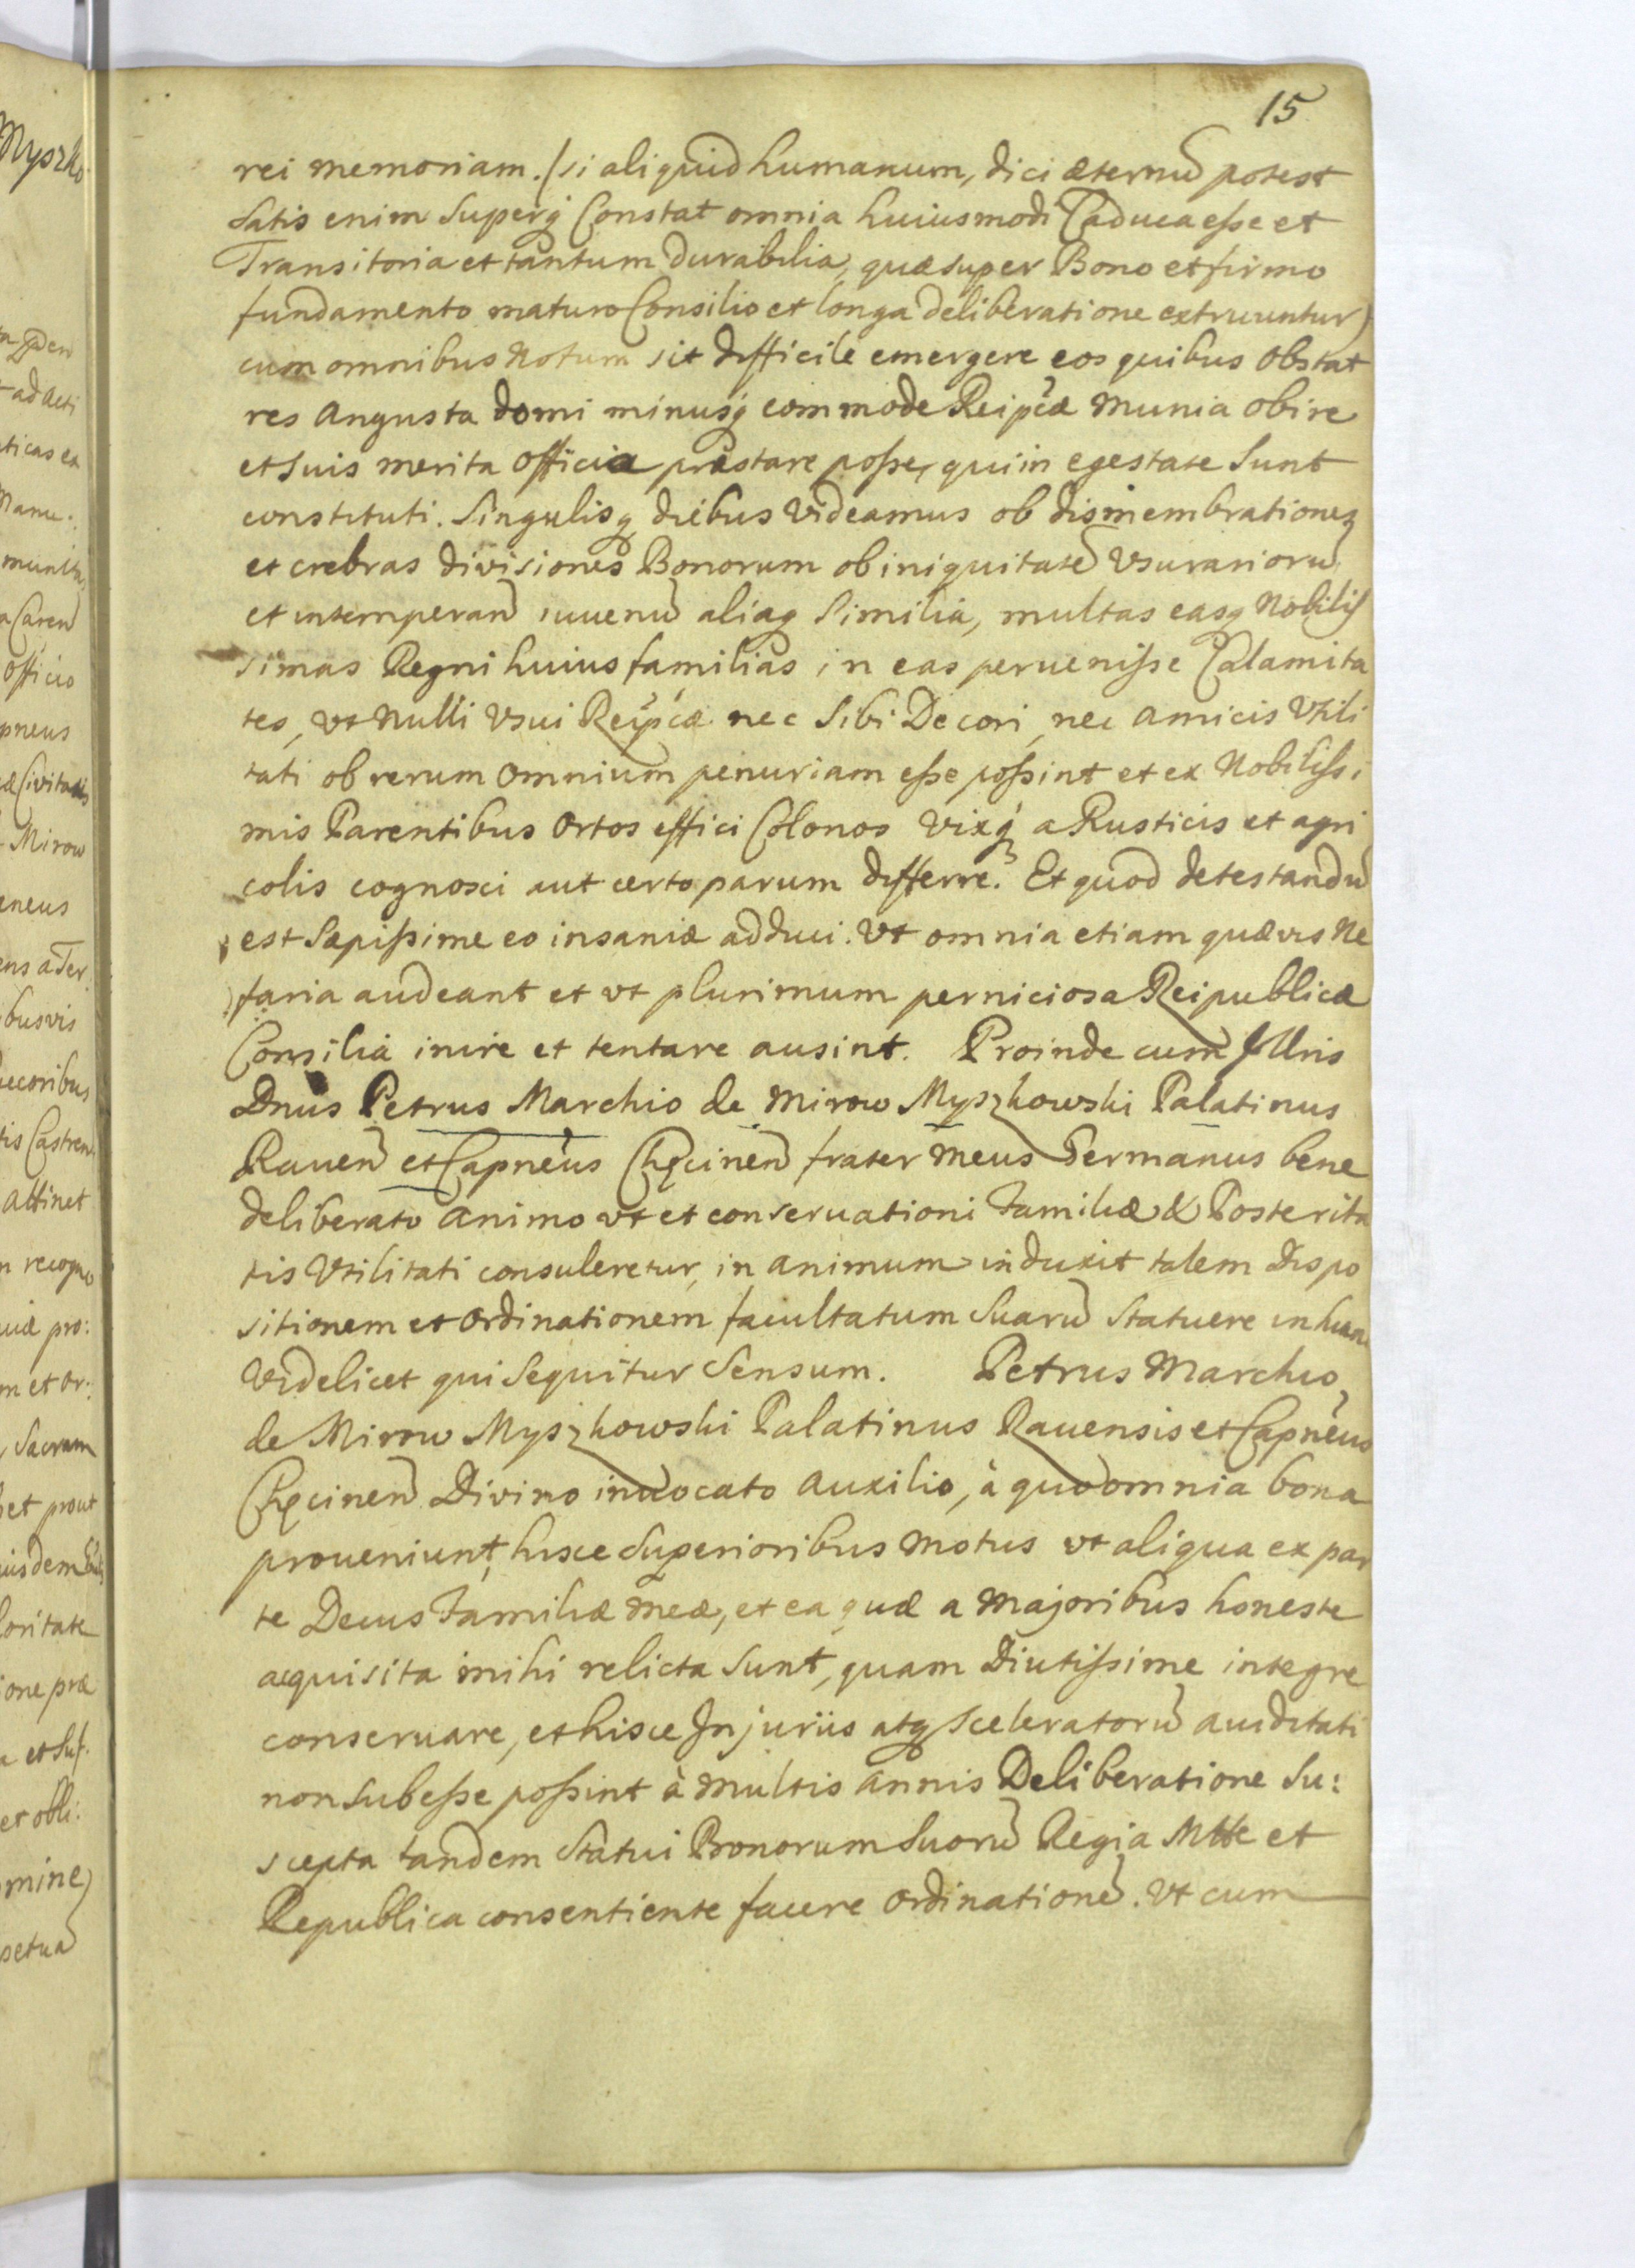 15
rei memoriam. (si aliquid humanum, dici æternũ potest
satis enim superq́ Constat omnia huiusmodi Caduca esse et
Transitoria et tantum durabilia, quæ super Bono et firmo
fundamento maturo Consilio et longa deliberatione extruuntur)
cum omnibus Notum sit difficile emergere eos quibus Obstat
res Angusta domi minusq́ commode Reipćæ Munia obire
et suis merita officia præstare posse, qui in egestate sunt
constituti. Singulisq diebus Videamus ob dismembrationes
et crebras divisiones Bonorum ob iniquitatẽ Vsurariorũ
et intemperañ iuuenũ aliaq Similia, multas easq Nobilis
simas Regni huius familias in eas peruenisse Calamita
tes, vt Nulli Vsui Reipćæ nec Sibi Decori, nec Amicis Vtili
tati ob rerum Omnium penuriam esse possint et ex Nobilissi
mis Parentibus Ortos effici Colonos Vixq́ a Rusticis et agri
colis cognosci aut certo parum differre. Et quod detestandũ
est Sæpissime eo insaniæ adduci. Vt omnia etiam quævis Ne
faria audeant et vt plurimum perniciosa Reipublicæ
Consilia inire et tentare ausint. Proinde cum Illris
Dnus Petrus Marchio de Mirow Myszkowski Palatinus
Raueñ et Capneus Chęcineñ frater Meus Germanus bene
deliberato Animo vt et conseruationi Familiæ & Posterita
tis Vtilitati consuleretur, in Animum induxit talem Dispo
sitionem et Ordinationem facultatum Suarũ Statuere in hun
Videlicet qui Sequitur Sensum. Petrus Marchio
de Mirow Myszkowski Palatinus Rauensis et Capneus
Chęcineñ Divino invocato Auxilio, à quo omnia bona
proueniunt, hisce Superioribus Motus vt aliqua ex par
te Decus Familiæ Meæ, et ea quæ a Majoribus honeste
acquisita mihi relicta Sunt, quam Diutissime integre
conseruare, et hisce Injuriis atq Sceleratorũ auiditati
non subesse possint à Multis Annis Deliberatione Su:
scepta tandem Statui Bonorum Suorũ Regia Mtte et
Republica consentiente facere Ordinationẽ. Vt cum